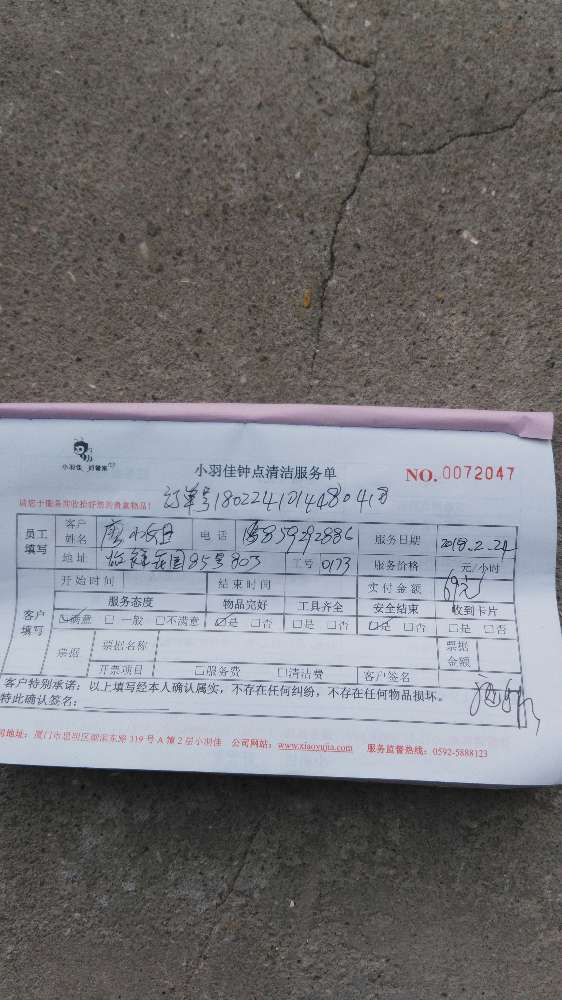 小羽佳
小羽佳钟点清洁服务单
NO. 0072047
请您于服务前收拾好您的贵重物品!
订单号
员工填写
客户姓名
小姐
电话
服务日期
2018.2.24
地址
花园85号803
工号
0173
服务价格
元/小时
开始时间
结束时间
实付金额
69元
客户填写
服务态度
物品完好
工具齐全
安全结束
收到卡片
☑满意 □ 一般 □不满意
☑是 □否
□是 □否
☑是 □否
□是 □否
票据
票据名称
票据金额
开票项目
□服务费
□清洁费
客户签名
客户特别承诺:以上填写经本人确认属实,不存在任何纠纷,不存在任何物品损坏。
特此确认签名:
司地址:厦门市思明区湖滨东路 319 号 A 馆 2 层小羽佳 公司网站:www.xiaoyujia.com 服务监督热线:0592-5888123